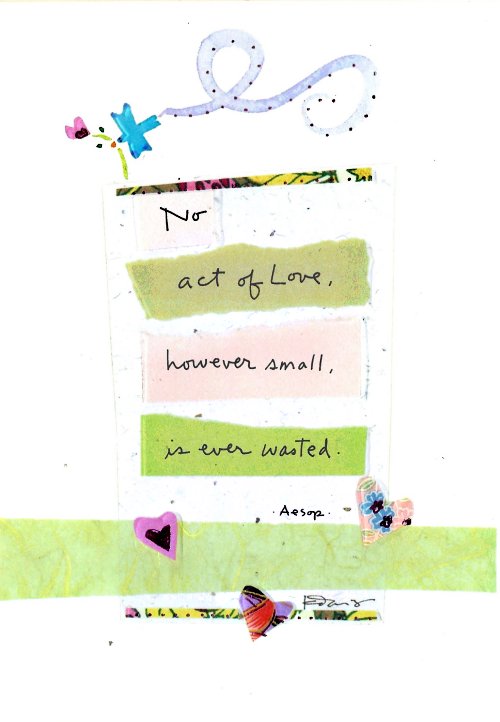 No
act of Love,
however small,
is ever wasted.
· Aesop ·